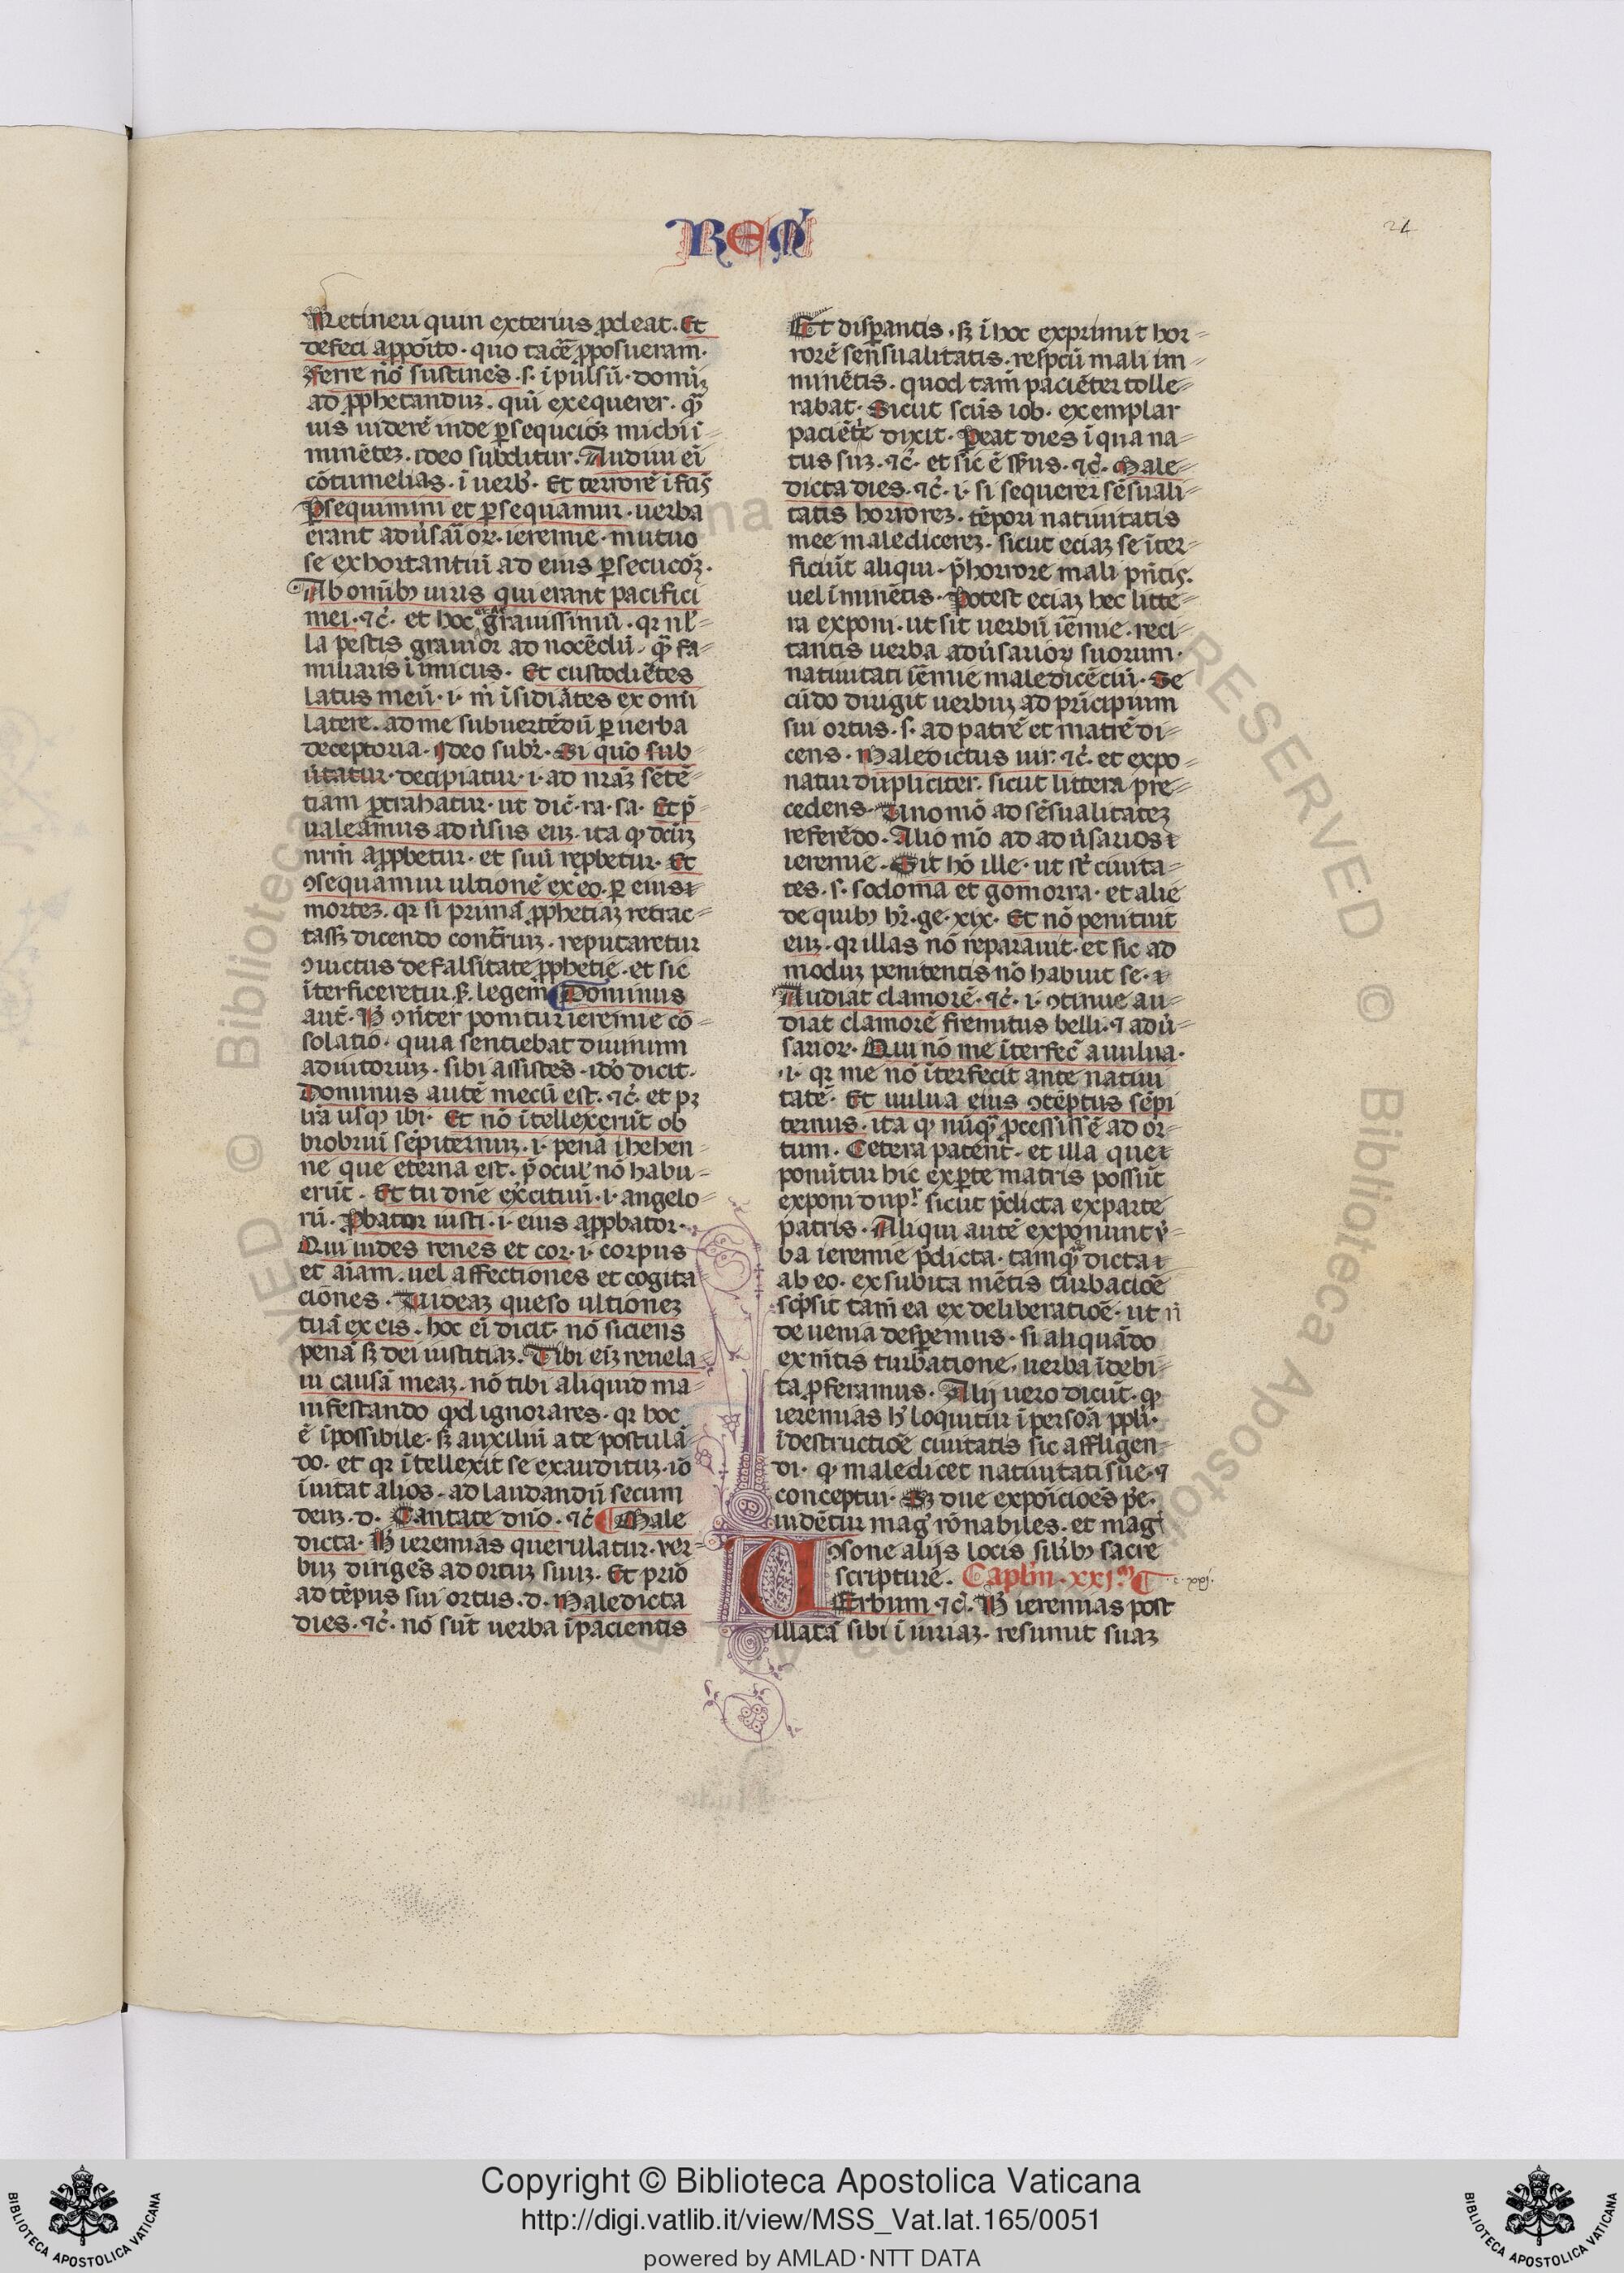 IEREM̄
24
Retineri quin exterius ꝓdeat. Et
defeci a ꝓpoīto. quo tacē ꝓposueram.
ꝫferre nō sustinēs. s. īpulsū. domīꝫ
ad ꝓphetanduꝫ. quī exequerer. qͣ̄
uis uiderē inde ꝑsequcioꝫ michi i-
minēteꝫ. ideo subditur. Audiui eī
cōtumelias. ī uerb̾. Et terrorē ī fcīs
Ꝑsequimini et ꝑsequamur. uerba
erant adūsaīor. ieremie. mutuo
se exhortantiū ad eius ꝑsecucōꝫ.
Ab omībꝫ uiris qui erant pacifici
mei. ⁊c̄. et hoc grauissimū. qꝛ nl̄-
la pestis grauior ad nocēdū. qͣ̄ fa-
miliaris inimicus. Et custodiētes
latus meū. i. m̄ īsidiātes ex omī
latere. ad me subuertēdū ꝑ uerba
deceptoria. Ideo subꝛ̄. Si quō sub-
ūtatur. decipiatur. i. ad nrāꝫ sētē-
tiam ꝑtrahatur. ut dic̄. ra. sa. Et p̄-
ualeamus aduˀsus euꝫ. ita ꝙ dcūꝫ
nrm̄ aꝓpbetur. et suū reꝓbetur. Et
ꝯsequamur ultionē ex eo. ꝑ eius
morteꝫ. qꝛ si primā ꝓphetiaꝫ retrac-
tassꝫ dicendo contrͣiuꝫ. reputaretur
ꝯuictus de falsitate ꝓphetie. et sic
īterficeretur. ẜ. legem. Dominus
aut̄. H̾ ꝯn̄ter ponitur ieremie cō-
solatio. quia sentiebat diuinum
adiutoriuꝫ. sibi assistēs. idō dicit.
Dominus autē mecū est. ⁊c̄. et pꝫ
lrā usqꝫ ibi. Et nō ītellexerūt ob
brobriū sēpiternuꝫ. i. penā ihehen-
ne que eterna est. p̄ ocul̾ nō habu-
erūt. Et tu dnē exͤcituū. i. angelo-
rū. Ꝓbator iusti. i. eius aꝓpbator.
Qui uides renes et cor. i. corpus
et aīam. uel affectiones et cogita
ciones. Uideaꝫ queso ultioneꝫ
tuā ex eis. hoc eī dicit. nō siciens
penā sꝫ dei iustitiaꝫ. Tibi eīꝫ reuela
ui causā meaꝫ. nō tibi aliquid ma-
nifestando qd̾ ignorares. qꝛ hoc
ē īpossibile. sꝫ auxiliū a te postulā-
do. et qꝛ ītellexit se exaudituꝫ. iō
īuitat alios. ad laudandū secum
deuꝫ. d. Cantate dn̄o. ⁊c̄ Male
dicta. H̾ ieremias querulatur. ver-
buꝫ dirigēs ad ortuꝫ suuꝫ. Et priō
ad tēpus sui ortus. d. Maledicta
dies. ⁊c̄. nō sūt uerba īpacientis
Et disꝑantis. sꝫ ī hoc exprimit hor-
rorē sēnsualitatis. respcū mali im-
minētis. quod tam̄ paciēter tolle-
rabat. Sicut scūs iob. exemplar
paciēte dixit. Ꝑeat dies ī qua na-
tus suꝫ. ⁊c̄. et sic ē sn̄us. ⁊c̄. Male-
dicta dies. ⁊c̄. i. si sequerer sēsuali-
tatis horroreꝫ. tēpori natiuitatis
mee maledicereꝫ. sicut eciaꝫ se īter-
ficiūt aliqui. p̄ horrore mali pn̄tis.
uel īminētis. Potest eciaꝫ hec litte-
ra exponi. ut sit uerbū iēmie. reci-
tantis uerba aduˀsarioꝝ suorum.
natiuitati iēmie maledicēciū. Se
cūdo dirigit uerbuꝫ ad principium
sui ortus. s. ad patrē et matrē di-
cens. Maledictus uir. ⁊c̄. et expo-
natur dupliciter. sicut littera pre-
cedens. Uno mō ad sēsualitateꝫ
referēdo. Alio mō ad aduˀsarios
ieremie. Sit hō ille. ut sͭ ciuita-
tes. s. sodoma et gomorra. et alie
de quibꝫ hr̄. ge. xix. Et nō penituit
euꝫ. qꝛ illas nō reparauit. et sic ad
moduꝫ penitentis nō habuit se.
Audiat clamorē. ⁊c̄. i. ꝯtinue au-
diat clamorē fremitus belli. ⁊ aduˀ-
sarior. Qui nō me īterfec̄ a uulua.
.i. qꝛ me nō īterfecit ante natiui
tatē. Et uulua eius ꝯcēptus sēpi
ternus. ita ꝙ nūqͣ̄ ꝓcessissē ad or-
tum. Cetera patent̄. et illa que
ponūtur hic ex ꝑte matris possūt
exponi dupͬ. sicut p̄dicta ex parte
patris. Aliqui autē exponunt uˀ-
ba ieremie p̄dicta. tamqͣ̄ dicta
ab eo. ex subita mētis turbacioē
scͥpsit tam̄ ea ex deliberatioē. ut n̄
de uenia desꝑemus. si aliquādo
ex mētis turbatione. uerba īdebi-
ta ꝓferamus. Alij uero dicūt. ꝙ
ieremias h̾ loquitur ī persoā ppl̄i.
ī destructioē ciuitatis sic affligen-
di. ꝙ maledicet natiuitati sue. ⁊
conceptui. Sꝫ due expoīcioēs pͥe.
uidētur mag̾ rōnabiles. et mag̾
ꝯsone alijs locis silībꝫ sacre
scripture. Caplm̄. xxj.ᵐ
.c. xxj.
UErbum ⁊c̄. H̾ ieremias post
illatā sibi īiuriaꝫ. resumit suaꝫ
Copyright © Biblioteca Apostolica Vaticana
http://digi.vatlib.it/view/MSS_Vat.lat.165/0051
powered by AMLAD·NTT DATA
BIBLIOTECA APOSTOLICA VATICANA
BIBLIOTECA APOSTOLICA VATICANA